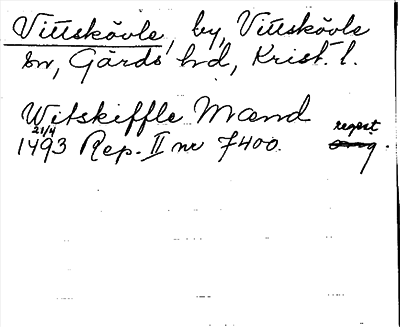 Vittskövle, by, Vittskövle
sn, Gärds hd, Krist. l.
Witskiffle Mænd
21/4
1493 Rep. II nr 7400.
regest